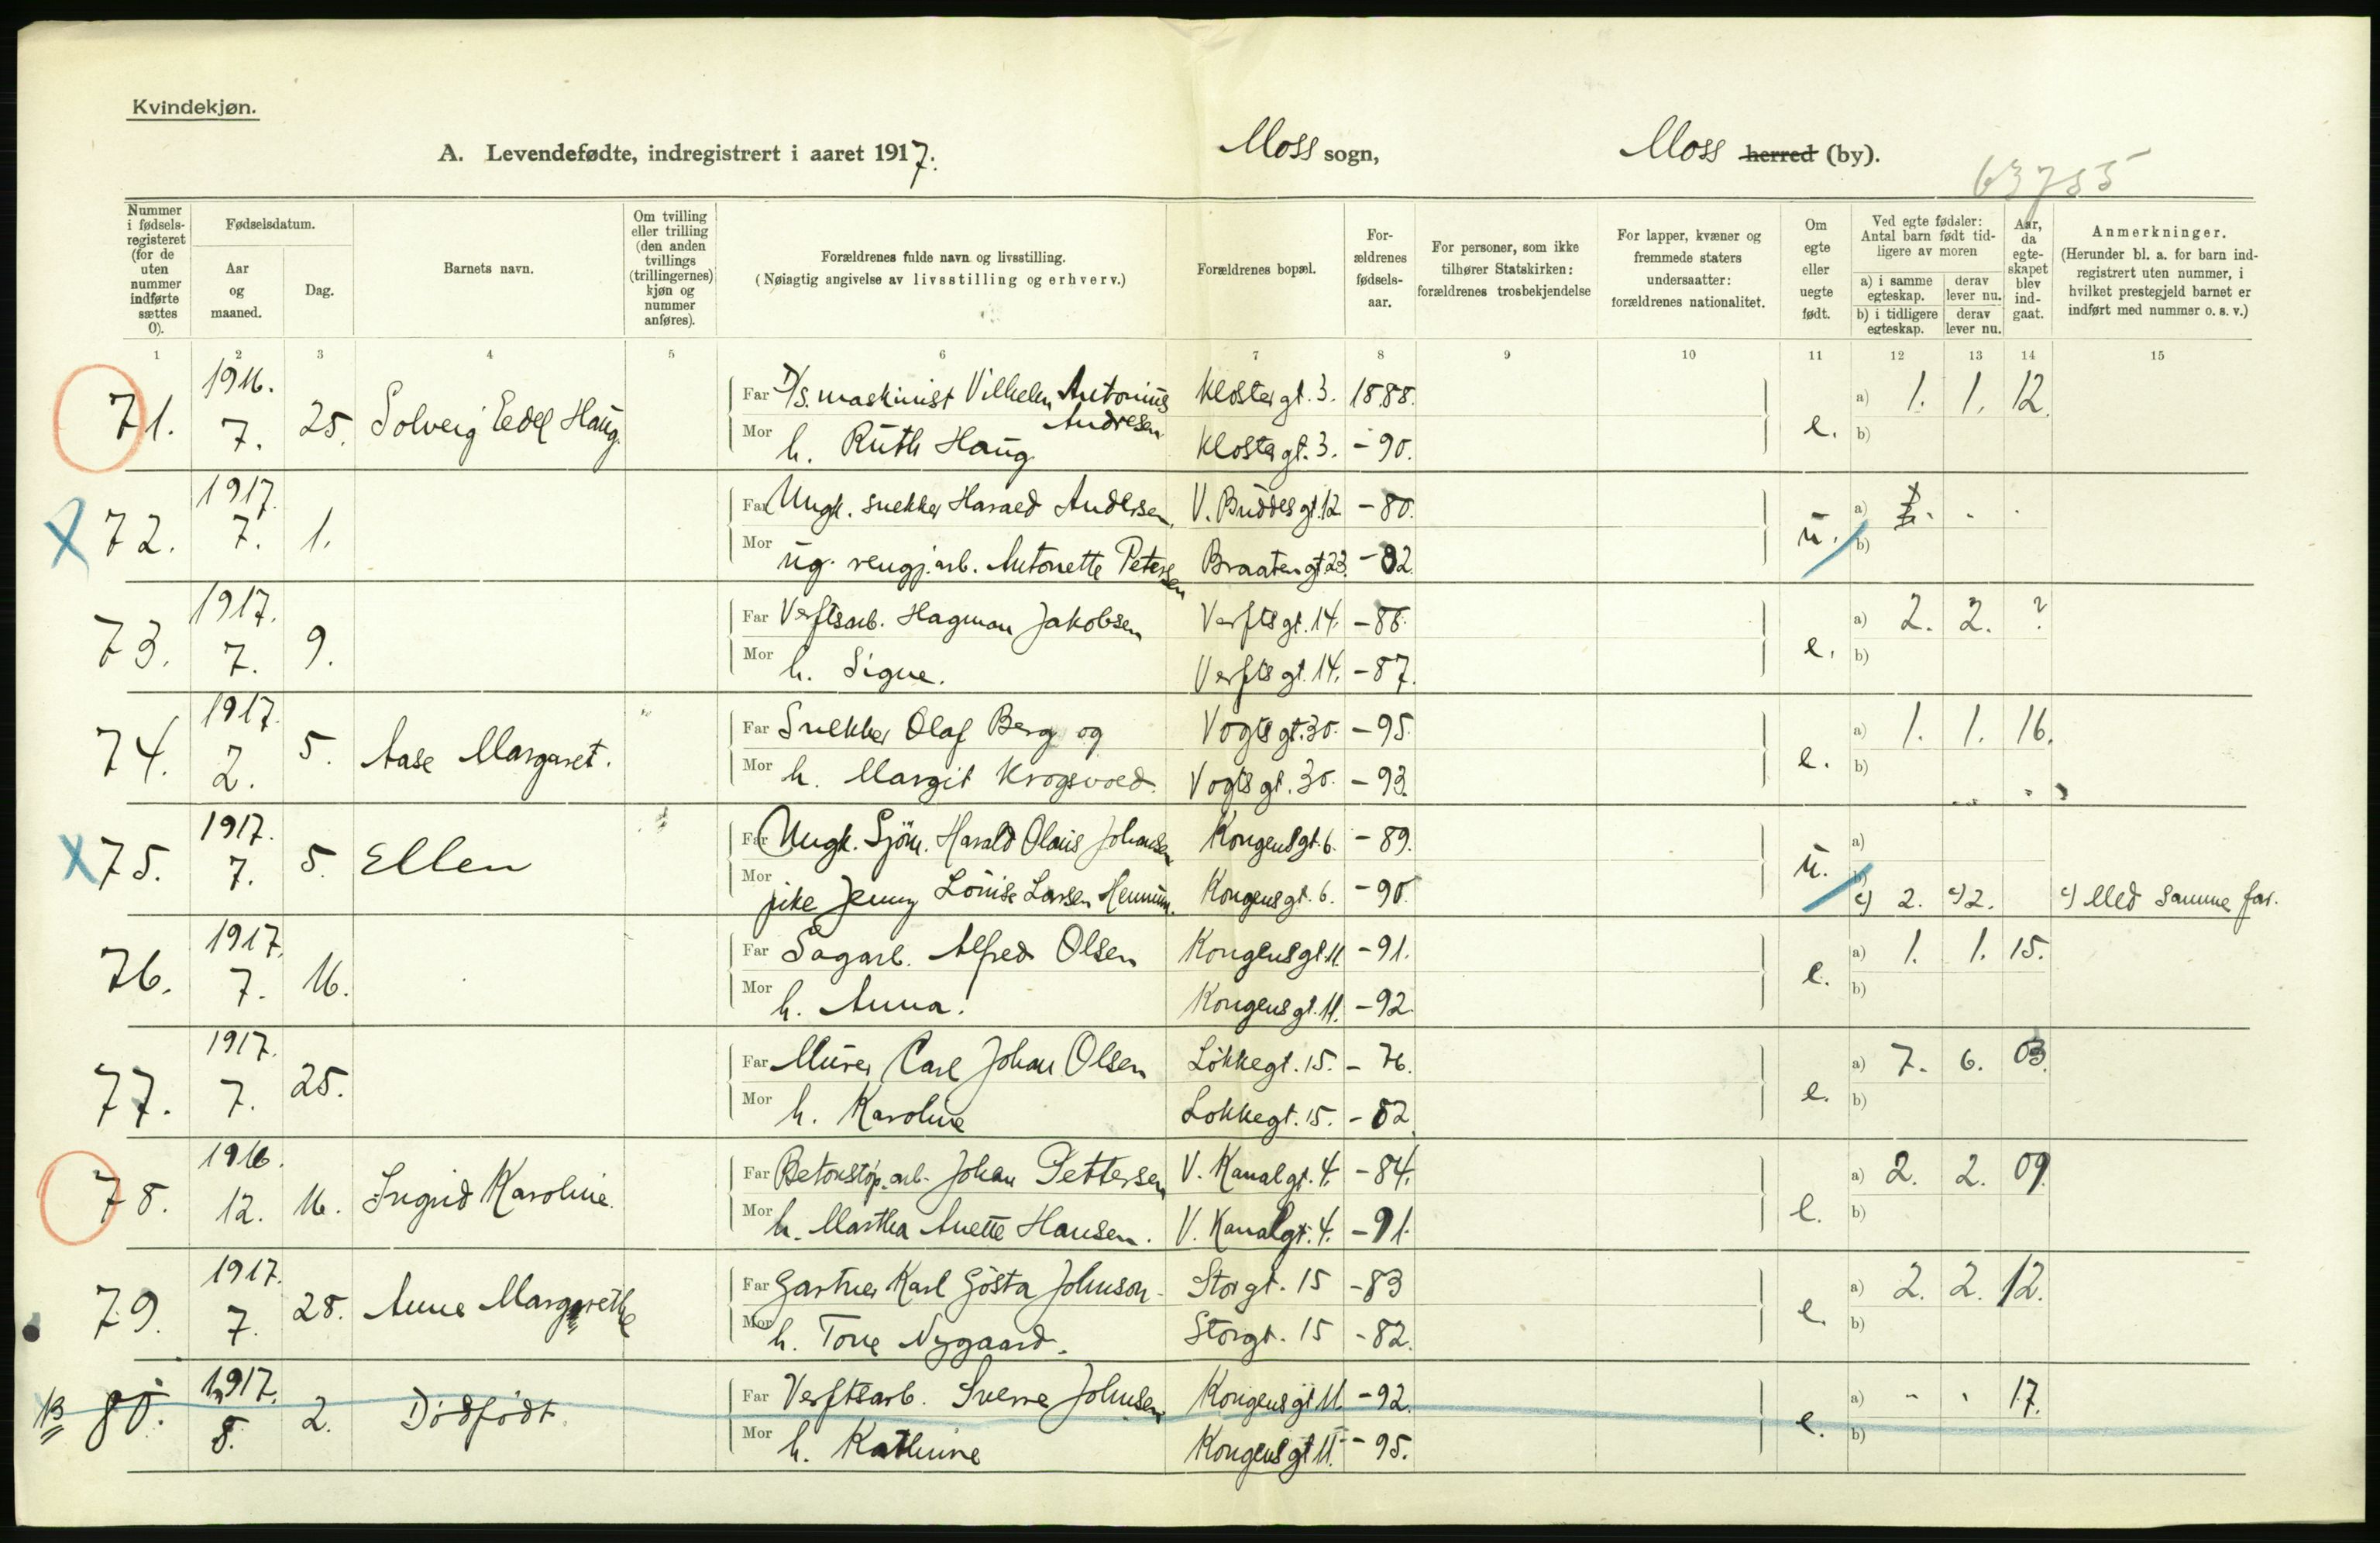 Kvindekjøn.
A. Levendefødte, indregistrert i aaret 1917. Moss sogn, Moss herred (by).
63755
Nummer i fødsels-registeret (for de uten nummer indførte sættes 0).
Fødselsdatum.
Aar og maaned.
Dag.
Barnets navn.
Om tvilling eller trilling (den anden tvillings (trillingernes) kjøn og nummer anføres).
Forældrenes fulde navn og livsstilling.
(Nøiagtig angivelse av livsstilling og erhverv.)
Forældrenes bopæl.
For-ældrenes fødsels-aar.
For personer, som ikke tilhører Statskirken: forældrenes trosbekjendelse
For lapper, kvæner og fremmede staters undersaatter: forældrenes nationalitet.
Om egte eller uegte født.
Ved egte fødsler: Antal barn født tid-ligere av moren
a) i samme egteskap. derav lever nu.
b) i tidligere egteskap. derav lever nu.
Aar, da egte-skapet blev ind-gaat.
Anmerkninger.
(Herunder bl. a. for barn ind-registrert uten nummer, i hvilket prestegjeld barnet er indført med nummer o. s. v.)
1 2 3 4 5 6 7 8 9 10 11 12 13 14 15
71. 1916. 7. 25. Solveig Edel Haug.
Far D/S. maskinist Vilhelm Antonius Andresen Klostergt. 3. 1888. a) 1. 1. 12.
Mor h. Ruth Haug Klostergt. 3. - 90. e. b)
X 72. 1917. 7. 1.
Far Ungk. snekker Harald Andersen, V. Buddesgt. 12. - 80. a)
Mor ug. rengj. arb. Antonette Petersen Braatengt. 23. - 82. u. b)
73. 1917. 7. 9.
Far Verftsarb. Hagman Jakobsen Verftsgt. 14. - 88. a) 2. 2. ?
Mor h. Signe. Verftsgt. 14. - 87. e. b)
74. 1917. 2. 5. Aase Margaret.
Far Snekker Olaf Berg og Vogtsgt. 30. - 95. a) 1. 1. 16.
Mor h. Margit Krogsvold. Vogtsgt. 30. - 93. e. b)
X 75. 1917. 7. 5. Ellen
Far Ungk. Sjöm. Harald Olaus Johansen Kongensgt. 6. - 89. u. a)
Mor pike Jenny Louise Larsen Hennum. Kongensgt. 6. - 90. b) c) 2. c) 2. c) Med samme far.
76. 1917. 7. 16.
Far Sagarb. Alfred Olsen Kongensgt. 11. - 91. a) 1. 1. 15.
Mor h. Anna. Kongensgt. 11. - 92. e. b)
77. 1917. 7. 25.
Far Murer Carl Johan Olsen Løkkegt. 15. - 76. a) 7. 6. 03.
Mor h. Karoline Løkkegt. 15. - 82. e. b)
78. 1916. 12. 16. Ingrid Karoline.
Far Betonstøp. arb. Johan Pettersen V. Kanalgt. 4. - 84. a) 2. 2. 09.
Mor h. Martha Anette Hansen. V. Kanalgt. 4. - 91. e. b)
79. 1917. 7. 28. Anne Margrethe
Far Gartner Karl Gösta Johnson Storgt. 15 - 83 a) 2. 2. 12.
Mor h. Tone Nygaard. Storgt. 15 - 82. e. b)
80. 1917. 8. 2. Dødfødt.
Far Verftsarb. Sverre Johnsen Kongensgt 11. - 92. a) - - 17.
Mor h. Kathrine Kongensgt 11. - 95. e. b)